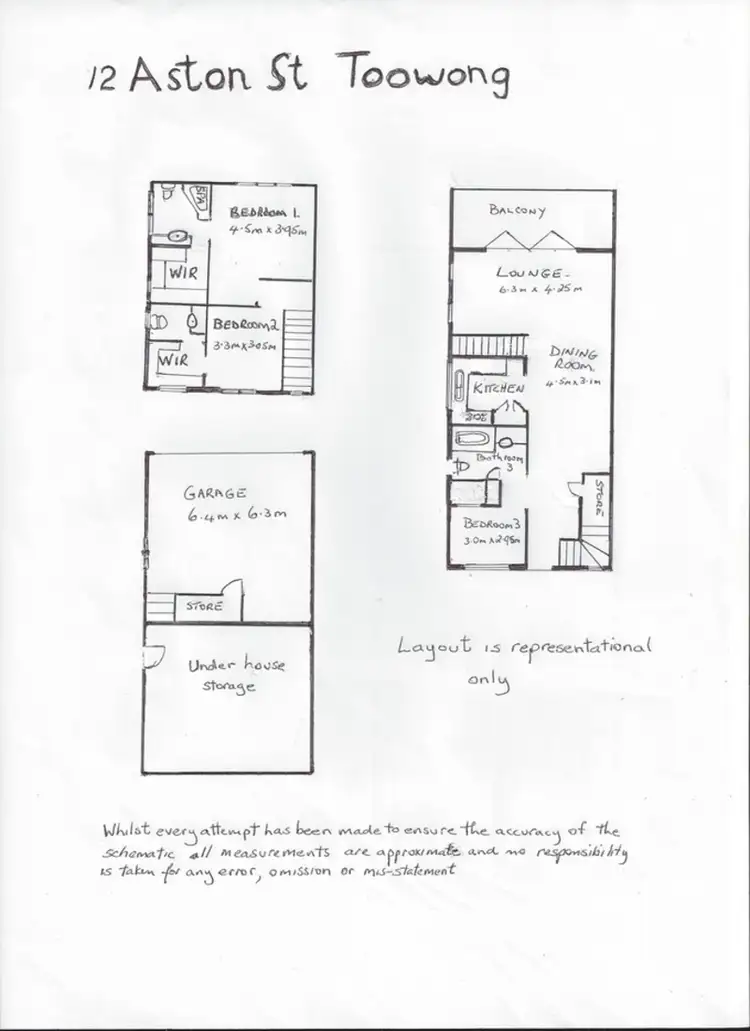 12 Aston St Toowong
SPA
BEDROOM 1.
4.5m x 3.95m
WIR
BEDROOM 2
3.3m x 3.05m
WIR
BALCONY
LOUNGE
6.3m x 4.25m
DINING
ROOM
4.5m x 3.1m
KITCHEN
Bathroom
3
STORE
BEDROOM 3
3.0m x 2.95m
GARAGE
6.4m x 6.3m
STORE
Under house
storage
Layout is representational
only
Whilst every attempt has been made to ensure the accuracy of the
schematic all measurements are approximate and no responsibility
is taken for any error, omission or mis-statement